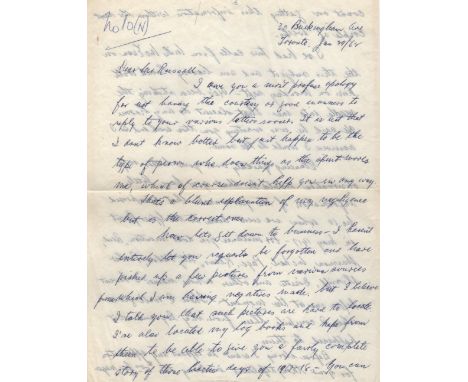 No 10 (N)
20 Buckingham Ave
Toronto. Jan 29/62
Dear Mr Russell:
I owe you a most profuse apology
for not having the courtesy or good manners to
reply to your various letters sooner. It is not that
I dont know better but just happen to be the
type of person who does things as the spirit moves
me, which of course doesnt help you in any way.
thats a blunt explanation of my negligence
but is the correct one.
Now lets get down to business - I havent
entirely let you regards be forgotten and have
picked up a few pictures from various sources
from which I am having negatives made but I believe
I told you that such pictures are hard to locate
I've also located my log books and hope from
them to be able to give you a fairly complete
story of those hectic days of 1917-18 - You can